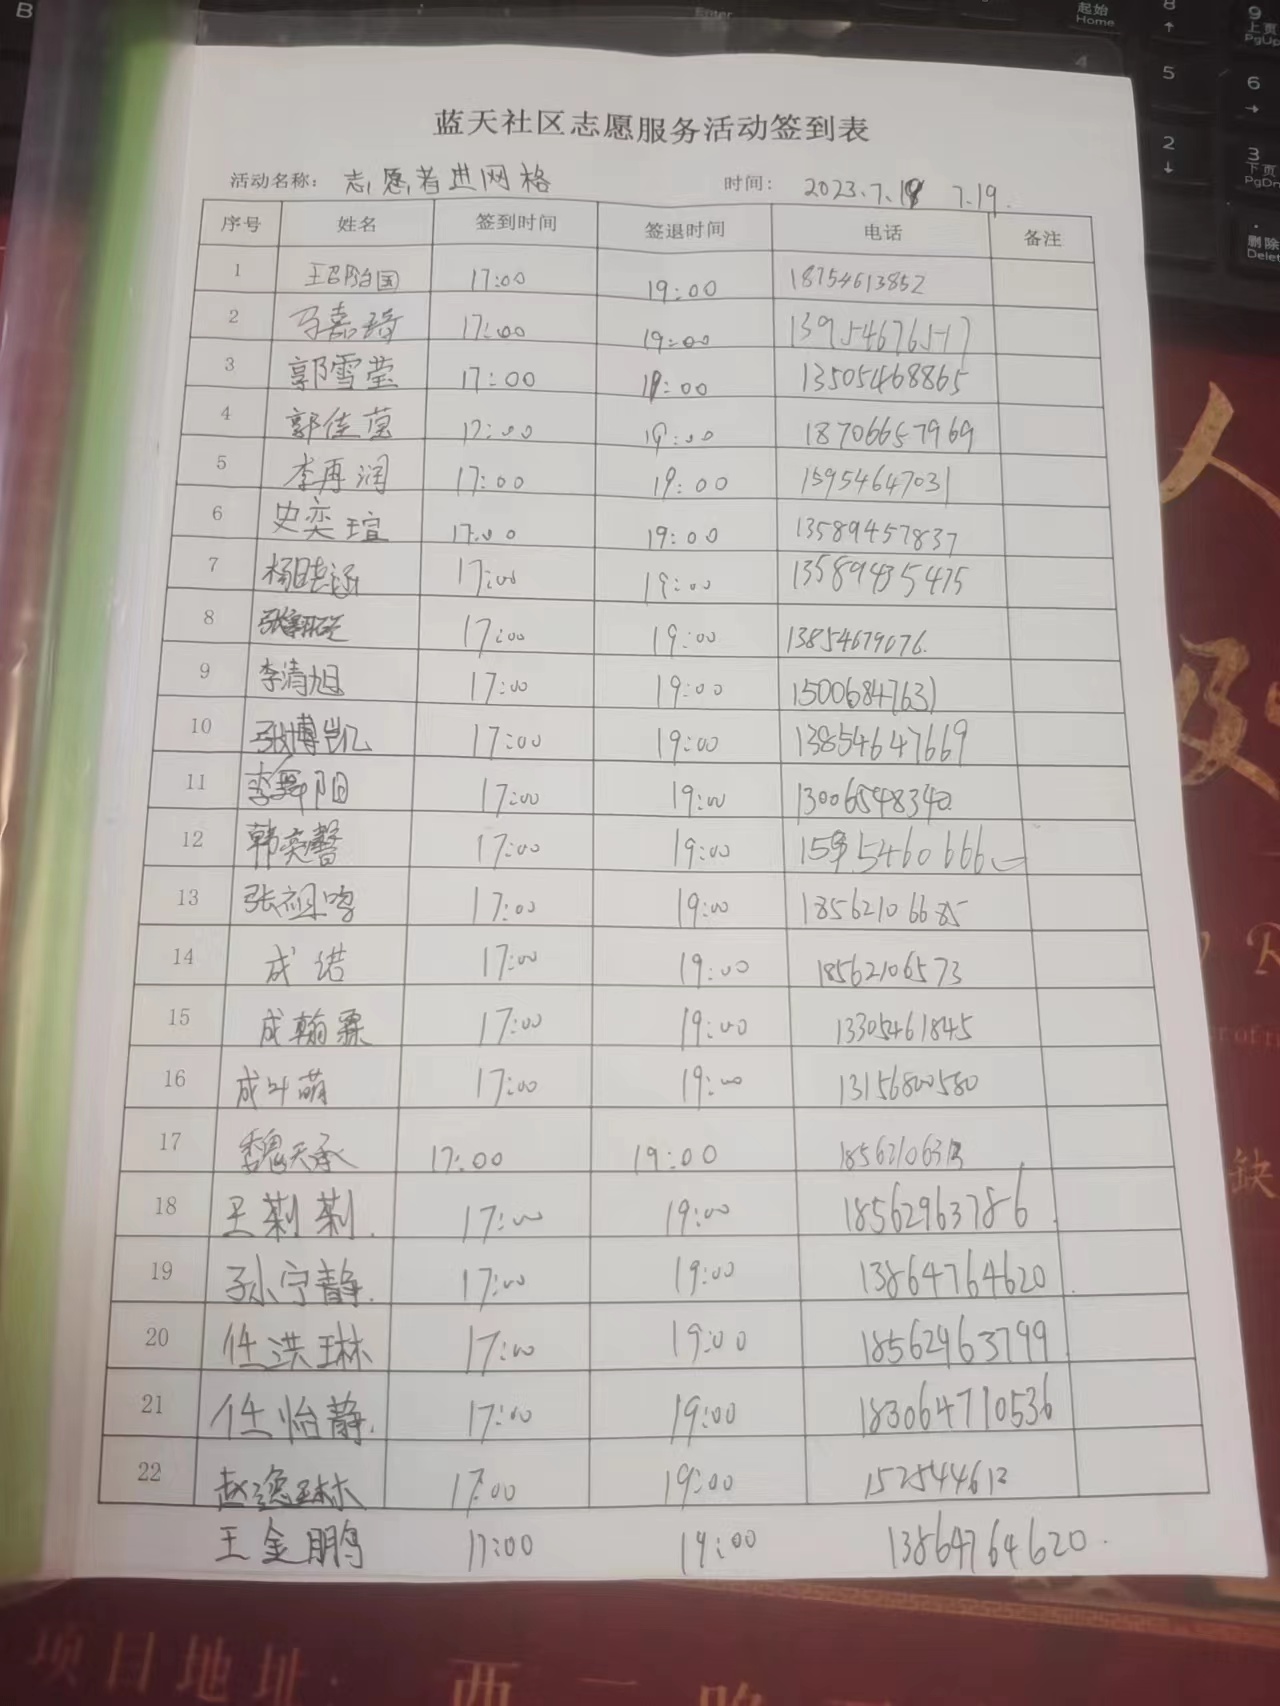 B
Enter
起始
Home
8
↑
9
上页
PgUp
4
5
6
→
2
↓
3
下页
PgDn
.
删除
Delete
蓝天社区志愿服务活动签到表
活动名称： 志愿者进网格 时间： 2023.7.18 7.19.
序号 姓名 签到时间 签退时间 电话 备注
1 17:00 19:00 18754613852
2 马嘉琦 17:00 19:00 13954676517
3 郭雪莹 17:00 19:00 13505468865
4 郭佳莹 17:00 19:00 18706657969
5 李再润 17:00 19:00 15954647031
6 史奕瑄 17:00 19:00 13589457837
7 17:00 19:00 13589435475
8 17:00 19:00 13854679076.
9 李清旭 17:00 19:00 15006847631
10 张博凯 17:00 19:00 13854647669
11 17:00 19:00 13006548340
12 韩奕馨 17:00 19:00
13 17:00 19:00 18562106685
14 成诺 17:00 19:00 18562106573
15 成翰霖 17:00 19:00 13305461845
16 成叶萌 17:00 19:00 13156800580
17 魏天承 17:00 19:00
18 王莉莉. 17:00 19:00 18562963786
19 孙宁静. 17:00 19:00 13864764620
20 任洪琳 17:00 19:00 18562963799
21 任怡静. 17:00 19:00 183064710536
22 赵逸琳 17:00 19:00 152544612
王金鹏 17:00 19:00 13864764620.
人
缺
项目地址：西一路